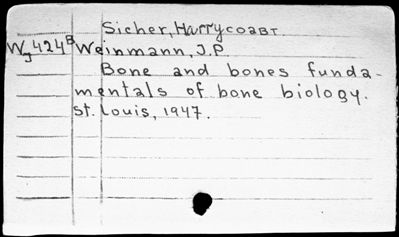 Sicher, Harry соавт
Wj424B Weinmann, J.P
Bone and bones funda-
mentals of bone biology.
St. Louis, 1947.